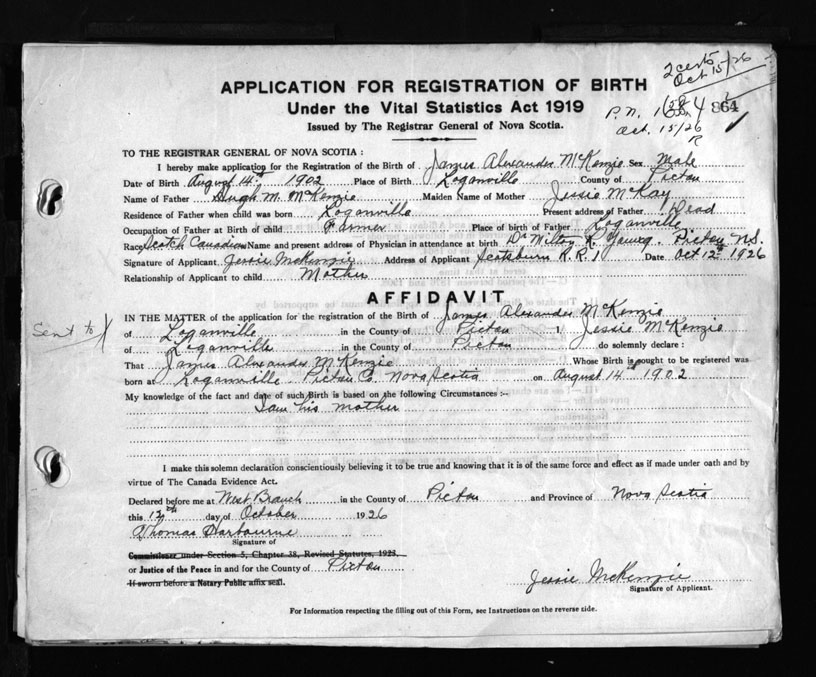 2 certs
Oct 15/26
APPLICATION FOR REGISTRATION OF BIRTH
Under the Vital Statistics Act 1919
Issued by The Registrar General of Nova Scotia.
P.N. 864
Oct. 15/26
R
TO THE REGISTRAR GENERAL OF NOVA SCOTIA :
I hereby make application for the Registration of the Birth of James Alexander McKenzie Sex Male
Date of Birth August 14th 1902 Place of Birth Loganville County of Pictou
Name of Father Hugh M. McKenzie Maiden Name of Mother Jessie McKay
Residence of Father when child was born Loganville Present address of Father Dead
Occupation of Father at Birth of child Farmer Place of birth of Father Loganville
Race Scotch Canadian Name and present address of Physician in attendance at birth Dr Milton R. Young. Pictou N.S.
Signature of Applicant Jessie McKenzie Address of Applicant Scotsburn R.R.1 Date Oct 12th 1926
Relationship of Applicant to child Mother
AFFIDAVIT
IN THE MATTER of the application for the registration of the Birth of James Alexander McKenzie
Sent to
of Loganville in the County of Pictou I, Jessie McKenzie
of Loganville in the County of Pictou do solemnly declare :
That James Alexander McKenzie Whose Birth is sought to be registered was
born at Loganville Pictou Co. Nova Scotia on August 14th 1902
My knowledge of the fact and date of such Birth is based on the following Circumstances :—
I am his mother
I make this solemn declaration conscientiously believing it to be true and knowing that it is of the same force and effect as if made under oath and by
virtue of The Canada Evidence Act.
Declared before me at West Branch in the County of Pictou and Province of Nova Scotia
this 12th day of October 1926
Thomas Harbourne
Signature of
Commissioner under Section 5, Chapter 38, Revised Statutes, 1923.
or Justice of the Peace in and for the County of Pictou
If sworn before a Notary Public affix seal.
Jessie McKenzie
Signature of Applicant.
For Information respecting the filling out of this Form, see Instructions on the reverse side.